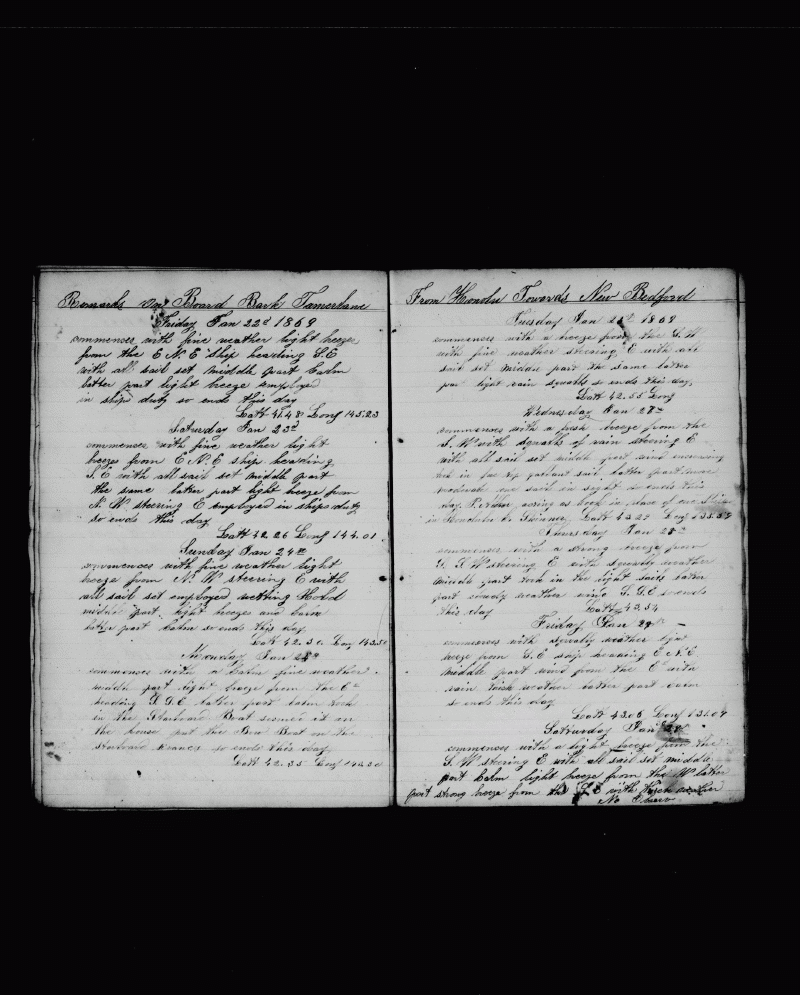 Remarks on Board Bark Tamerlane
Friday Jan 22d 1869
commences with fine weather light breeze
from the E N. E ship heading S. E
with all sail set middle part calm
latter part light breeze employed
in ships duty so ends this day
Latt 41.48 Long 145.23
Saturday Jan 23d
commences with fine weather light
breeze from E N. E ship heading
S. E with all sail set middle part
the same latter part light breeze from
N. W steering E employed in ships duty
so ends this day
Latt 42.26 Long 144.01
Sunday Jan 24th
commences with fine weather light
breeze from N. W steering E with
all sail set employed wetting Hold
middle part light breeze and calm
latter part calm so ends this day
Latt 42.30 Long 143.50
Monday Jan
commences with a calm fine weather
middle part light breeze from the E
heading latter part calm took
in the Starboard Boat it on
the house put the Bow Boat on the
starboard cranes so ends this day
Latt 42.35 Long
From Honolu Towards New Bedford
Tuesday Jan 1869
commences with a breeze from the S. W
with fine weather steering E with all
sail set middle part the same latter
part light rain squalls so ends this day
Latt 42.55 Long
Wednesday Jan 27th
commences with a fresh breeze from the
S. W with squalls of rain steering E
with all sail set middle part wind increasing
took in top gallant sail latter part more
moderate one sail in sight so ends this
day acting as Cook in place of one
in Honolulu Latt 43.27 Long
Thursday Jan 28th
commences with a strong breeze from
S. W steering E with squally weather
middle part took in the light sails latter
part weather wind so ends
this day Latt 42.54
Friday Jan 29th
commences with squally weather light
breeze from S. E ship heading E N. E
middle part wind from the E with
rain thick weather latter part calm
so ends this day
Latt 43.06 Long 131.07
Saturday Jan
commences with a light breeze from the
S. W steering E with all sail set middle
part calm light breeze from the W latter
part strong breeze from the S. E with thick weather
No Observ